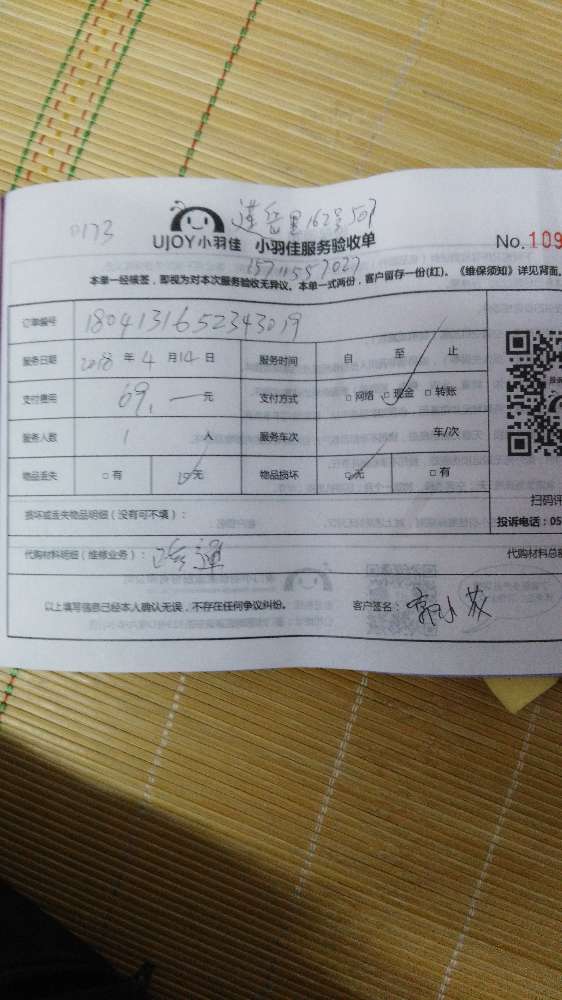 0173 莲岳里162号507
UJOY小羽佳 小羽佳服务验收单 No.109
15711557027
本单一经核签,即视为对本次服务验收无异议。本单一式两份,客户留存一份(红)。《维保须知》详见背面。
订单编号 1804131652343019
服务日期 2018 年 4 月 14 日 服务时间 自 至 止
支付费用 69.— 元 支付方式 □网络 □现金 □转账
服务人数 1 人 服务车次 车/次
物品丢失 □有 □无 物品损坏 □无 □有
损坏或丢失物品明细(没有可不填):
扫码评
投诉电话:05
代购材料明细(维修业务): 通 代购材料总额
以上填写信息已经本人确认无误,不存在任何争议纠纷。 客户签名: